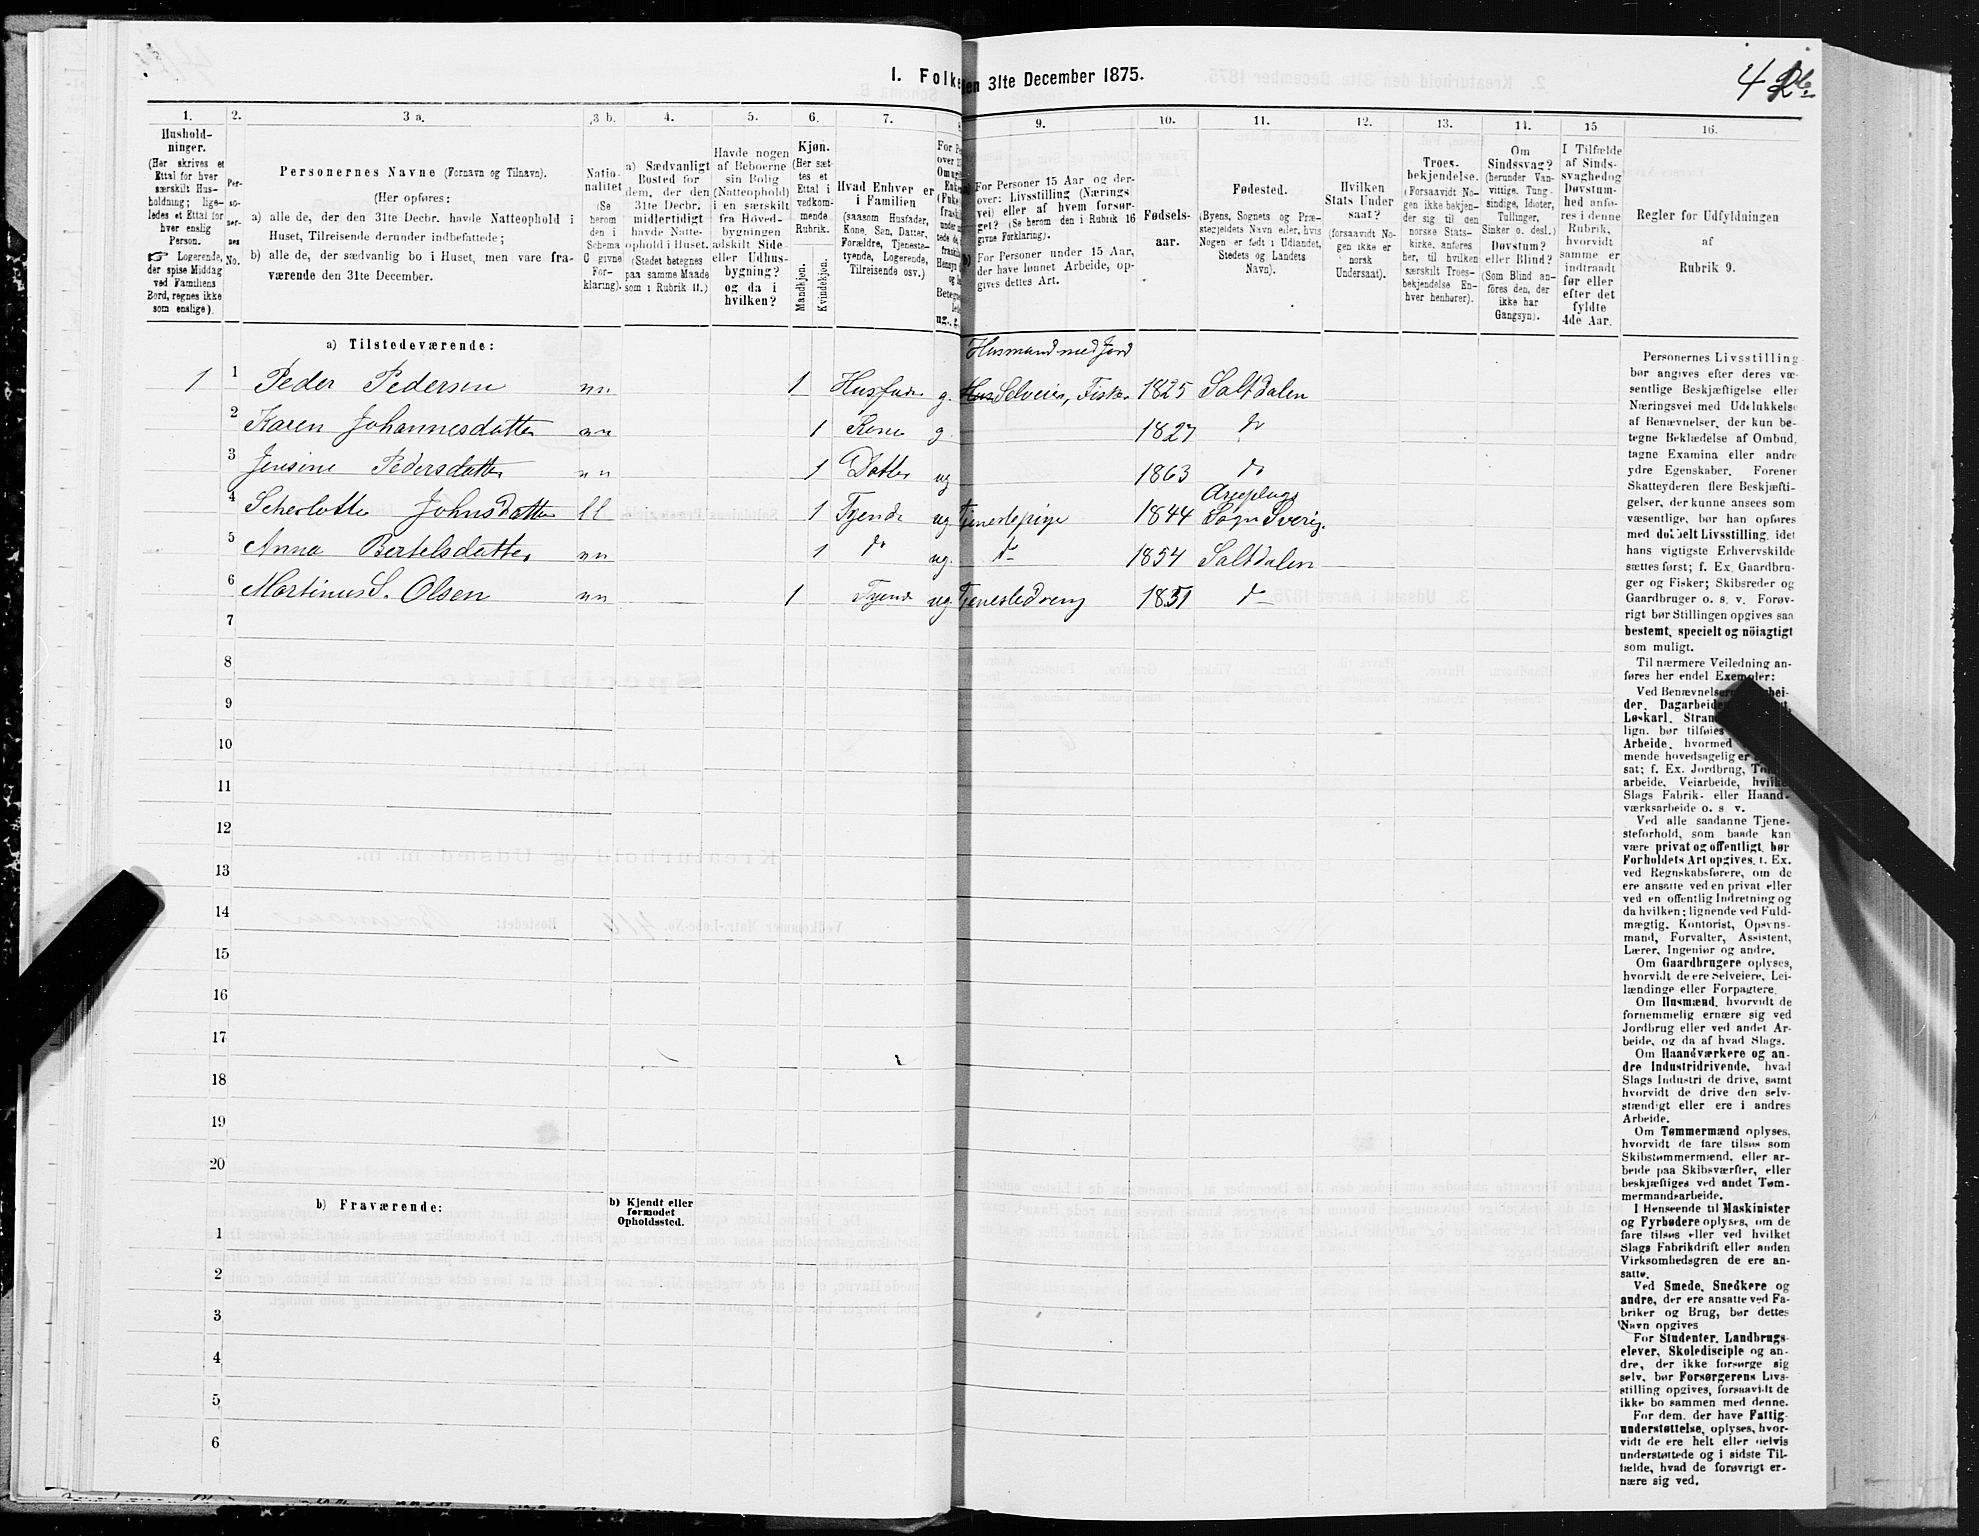 1. Folke
den 31te December 1875.
1.
Hushold-
ninger.
(Her skrives et
Ettal for hver
særskilt Hus-
holdning; lige-
ledes et Ettal for
hver enslig
Person.
☞ Logerende,
der spise Middag
ved Familiens
Bord, regnes ikke
som enslige).
2.
Per-
so-
ner-
nes
No.
3 a.
Personernes Navne (Fornavn og Tilnavn).
(Her opføres:
a) alle de, der den 31te Decbr. havde Natteophold i
Huset, Tilreisende derunder indbefattede;
b) alle de, der sædvanlig bo i Huset, men vare fra-
værende den 31te December.
3 b.
Natio-
nalitet
(Se
herom
den i
Schema
C givne
For-
klaring).
4.
a) Sædvanligt
Bosted for
dem, der den
31te Decbr.
midlertidigt
havde Natte-
ophold i Huset.
(Stedet betegnes
paa samme Maade
som i Rubrik 11.)
5.
Havde nogen
af Beboerne
sin Bolig
(Natteophold)
i en særskilt
fra Hoved-
bygningen
adskilt Side-
eller Udhus-
bygning?
og da i
hvilken?
6.
Kjøn.
(Her sæt-
tes et
Ettal i
vedkom-
mende
Rubrik.
Mandkjøn.
Kvindekjøn.
7.
Hvad Enhver er
i Familien
(saasom Husfader,
Kone, Søn, Datter,
Forældre, Tjeneste-
tyende, Logerende,
Tilreisende osv.)
9.
For Personer 15 Aar og der-
over: Livsstilling (Nærings-
vei) eller af hvem forsør-
get? (Se herom den i Rubrik 16
givne Forklaring).
For Personer under 15 Aar,
der have lønnet Arbeide, op-
gives dettes Art.
10.
Fødsels-
aar.
11.
Fødested.
(Byens, Sognets og Præ-
stegjeldets Navn eller, hvis
Nogen er født i Udlandet,
Stedets og Landets
Navn).
12.
Hvilken
Stats Under
saat?
(forsaavidt No-
gen ikke er
norsk
Undersaat).
13.
Troes-
bekjendelse.
(Forsaavidt No-
gen ikke bekjen-
der sig til den
norske Stats-
kirke, anføres
her, til hvilken
særskilt Troes-
bekjendelse En-
hver henhører).
14.
Om
Sindssvag?
(herunder Van-
vittige, Tung-
sindige, Idioter,
Tullinger,
Sinker o. desl.)
Døvstum?
eller Blind?
(Som Blind an-
føres den, der
ikke har
Gangsyn).
15
I Tilfælde
af Sinds-
svaghed og
Døvstum-
hed anfø-
res i denne
Rubrik,
hvorvidt
samme er
indtraadt
før eller
efter det
fyldte
4de Aar.
16.
Regler for Udfyldningen
af
Rubrik 9.
a) Tilstedeværende:
Husmand med Jord
1 1 Peder Pedersen nn 1 Husfader g. Selveier, Fisker 1825 Saltdalen
2 Karen Johannesdatter nn 1 Kone g. 1827 do
3 Jensine Pedersdatter nn 1 Datter ug 1863 do
Arjeplugs
4 Scherlotte Johnsdatter ll 1 Tyende ug. Tjenestepige 1844 Sogn Sverig.
5 Anna Bertelsdatter nn 1 do ug. do 1854 Saltdalen
6 Martinus S. Olsen nn 1 Tyende ug. Tjenestedreng 1851 do
7
8
9
10
11
12
13
14
15
16
17
18
19
20
b) Fraværende:
b) Kjendt eller
formodet
Opholdssted.
1
2
3
4
5
6
Personernes Livsstilling
bør angives efter deres væ-
sentlige Beskjæftigelse eller
Næringsvei med Udelukkelse
af Benævnelser, der kun be-
tegne Beklædelse af Ombud,
tagne Examina eller andre
ydre Egenskaber. Forener
Skatteyderen flere Beskjæfti-
gelser, der kunne ansees som
væsentlige, bør han opføres
med dobbelt Livsstilling, idet
hans vigtigste Erhvervskilde
sættes først; f. Ex. Gaardbru-
ger og Fisker; Skibsreder og
Gaardbruger o. s. v. Forøv-
rigt bør Stillingen opgives saa
bestemt, specielt og nöiagtigt
som muligt.
Til nærmere Veiledning an-
føres her endel Exempler:
Ved alle saadanne Tjene-
steforhold, som baade kan
være privat og offentligt, bør
Forholdets Art opgives, t. Ex.
ved Regnskabsførere, om de
ere ansatte ved en privat eller
ved en offentlig Indretning og
da hvilken; lignende ved Fuld-
mægtig, Kontorist, Opsyns-
mand, Forvalter, Assistent,
Lærer, Ingeniør og andre.
Om Gaardbrugere oplyses,
hvorvidt de ere Selveiere, Lei-
lændinge eller Forpagtere.
Om Husmænd, hvorvidt de
fornemmelig ernære sig ved
Jordbrug eller ved andet Ar-
beide, og da af hvad Slags.
Om Haandværkere og an-
dre Industridrivende, hvad
Slags Industri de drive, samt
hvorvidt de drive den selv-
stændigt eller ere i andres
Arbeide.
Om Tømmermænd oplyses,
hvorvidt de fare tilsøs som
Skibstømmermænd, eller ar-
beide paa Skibsværfter, eller
beskjæftiges ved andet Tøm-
mermandsarbeide.
I Henseende til Maskinister
og Fyrbødere oplyses, om de
fare tilsøs eller ved hvilket
Slags Fabrikdrift eller anden
Virksomhedsgren de ere an-
satte.
Ved Smede, Snedkere og
andre, der ere ansatte ved Fa-
briker og Brug, bør dettes
Navn opgives
For Studenter, Landbrugs-
elever, Skoledisciple og an-
dre, der ikke forsørge sig
selv, bør Forsørgerens Livs-
stilling opgives, forsaavidt de
ikke bo sammen med denne.
For dem, der have Fattig-
understøttelse, oplyses, hvor-
vidt de ere helt eller delvis
understøttede og i sidste Til-
fælde, hvad de forøvrigt er-
nære sig ved.